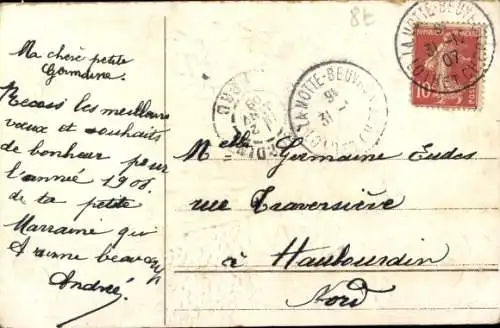 8t
Ma chère petite
Germaine.
Recois les meilleurs
vœux et souhaits
de bonheur pour
l'année 1908.
de ta petite
Marraine qui
t'aime beaucoup
Andrée.
LA MOTTE-BEUVRON
31
07
LOIR ET CH
10
LA MOTTE-BEUVRON
31
Melle Germaine Eudes
rue Traversière
à Haubourdin
Nord